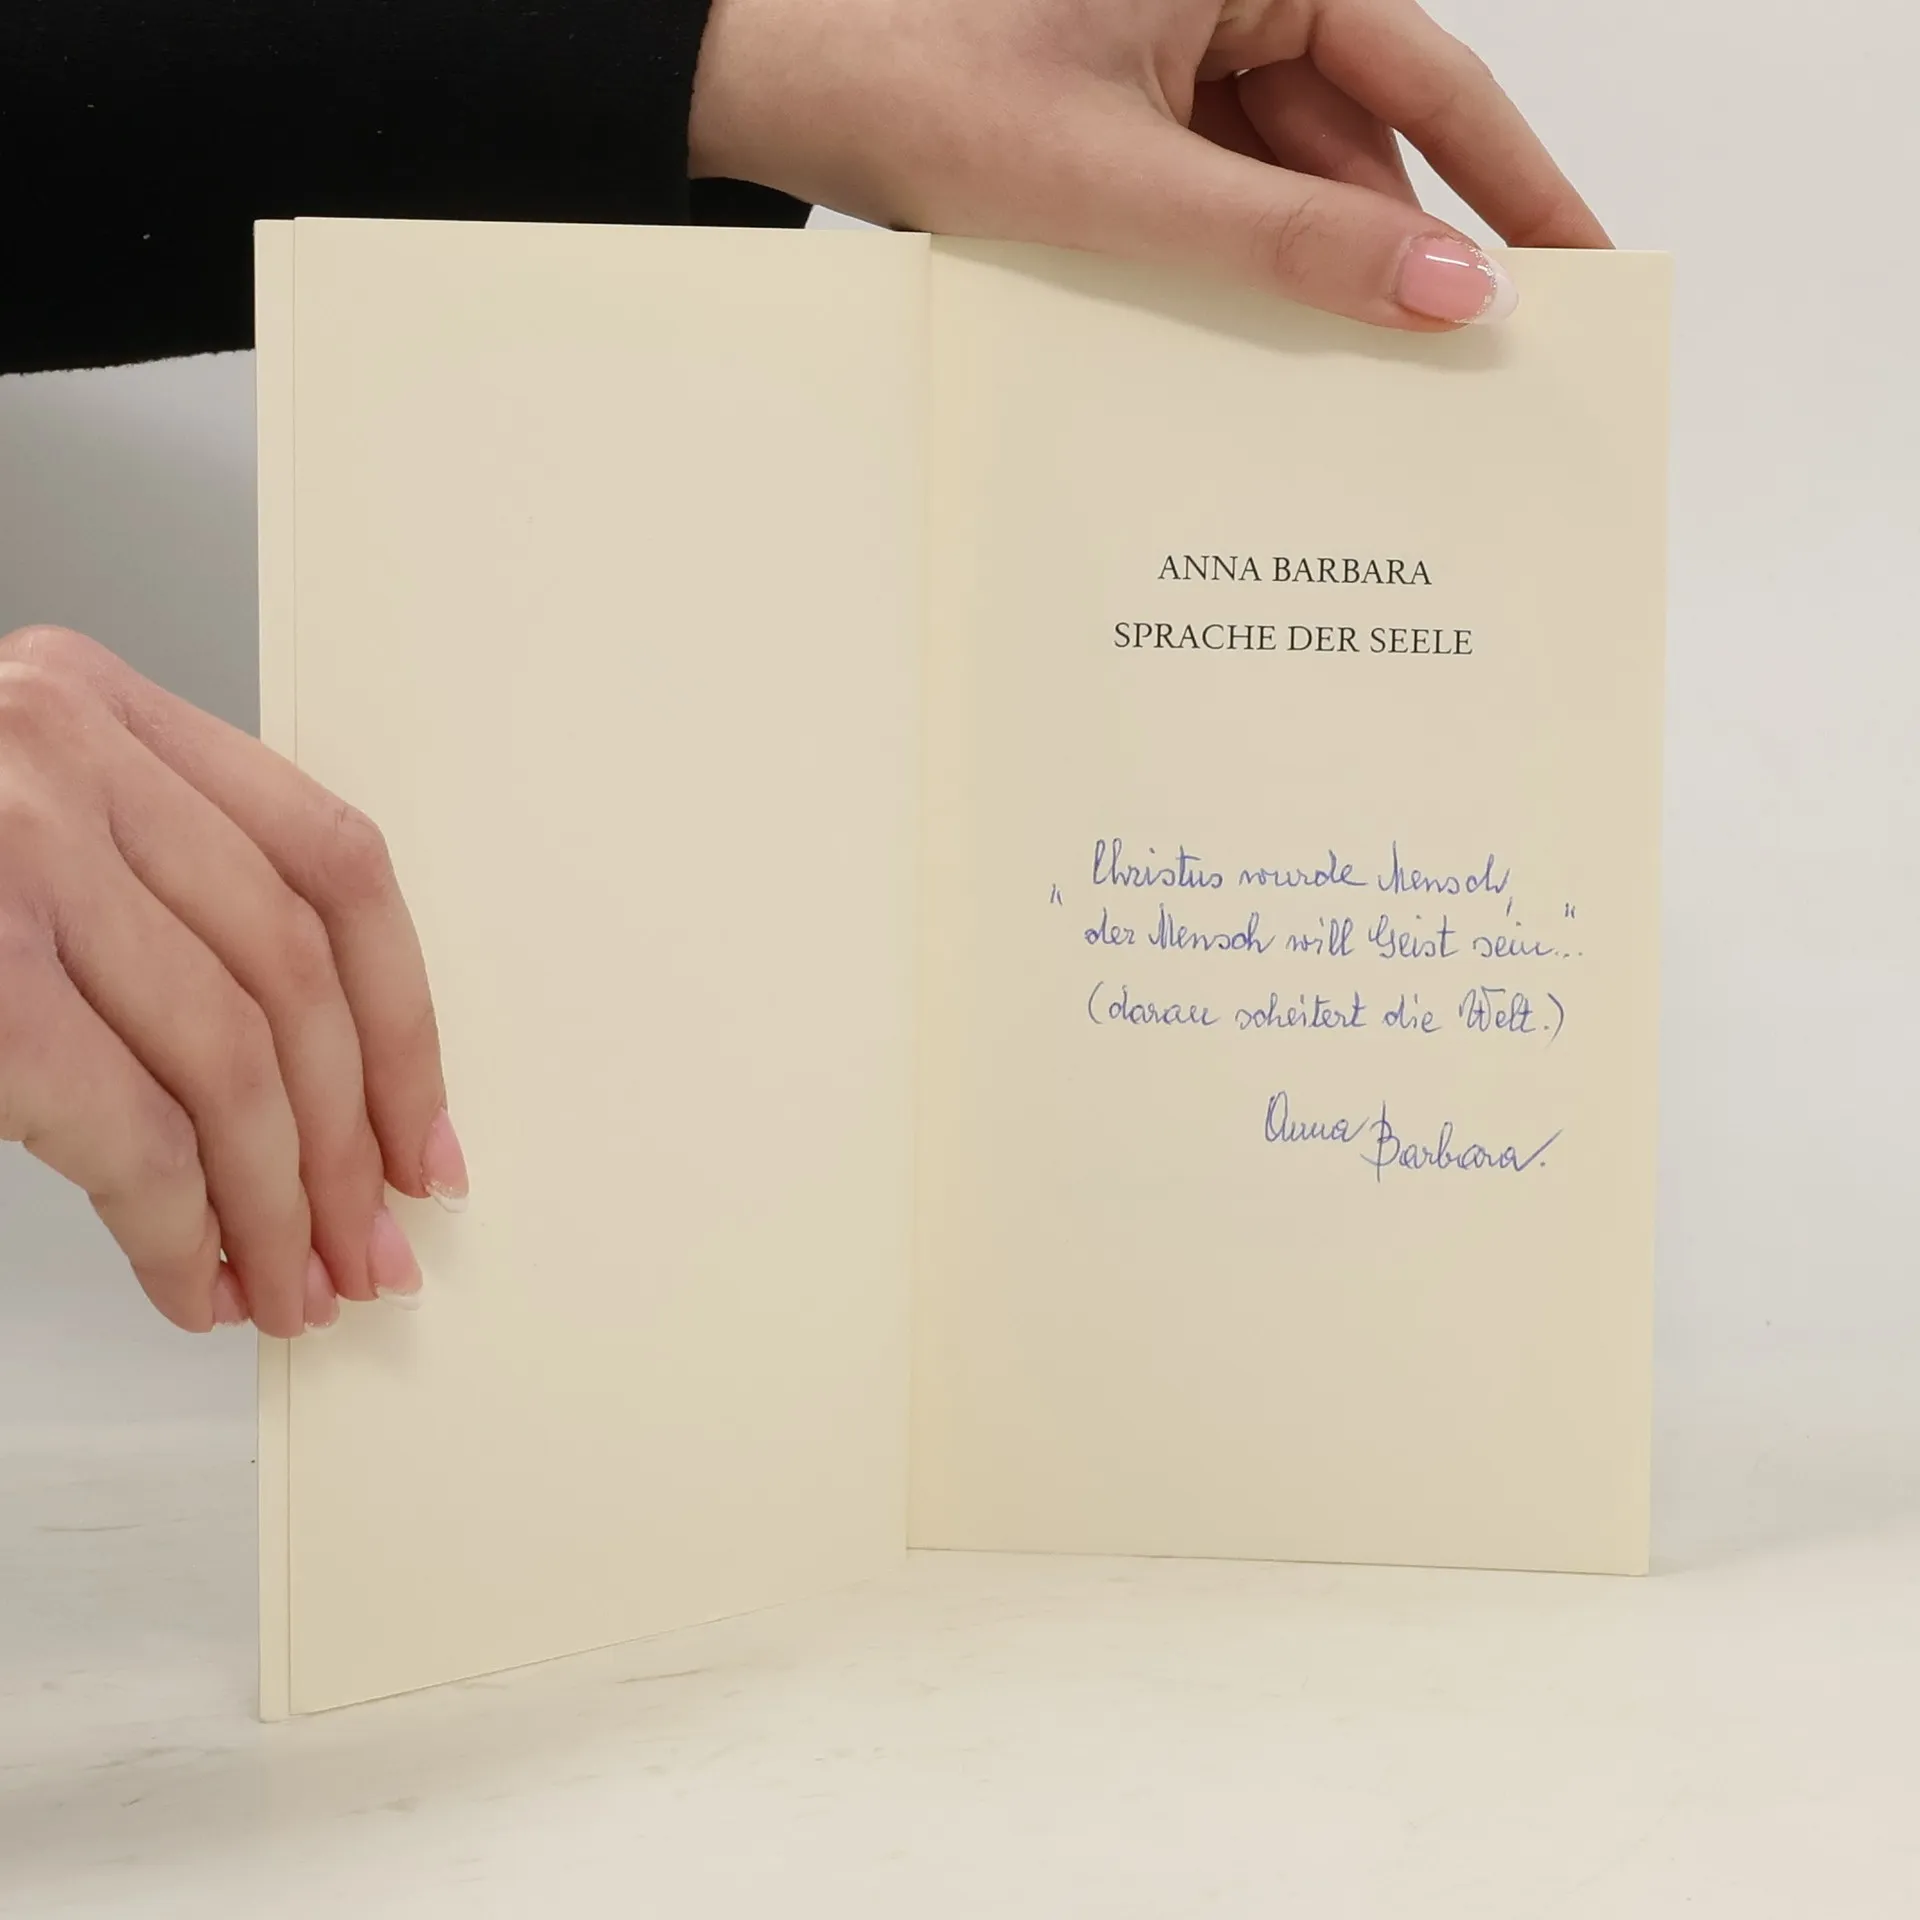 ANNA BARBARA
SPRACHE DER SEELE
"Christus wurde Mensch,
der Mensch will Geist sein..."
(daran scheitert die Welt.)
Anna Barbara.